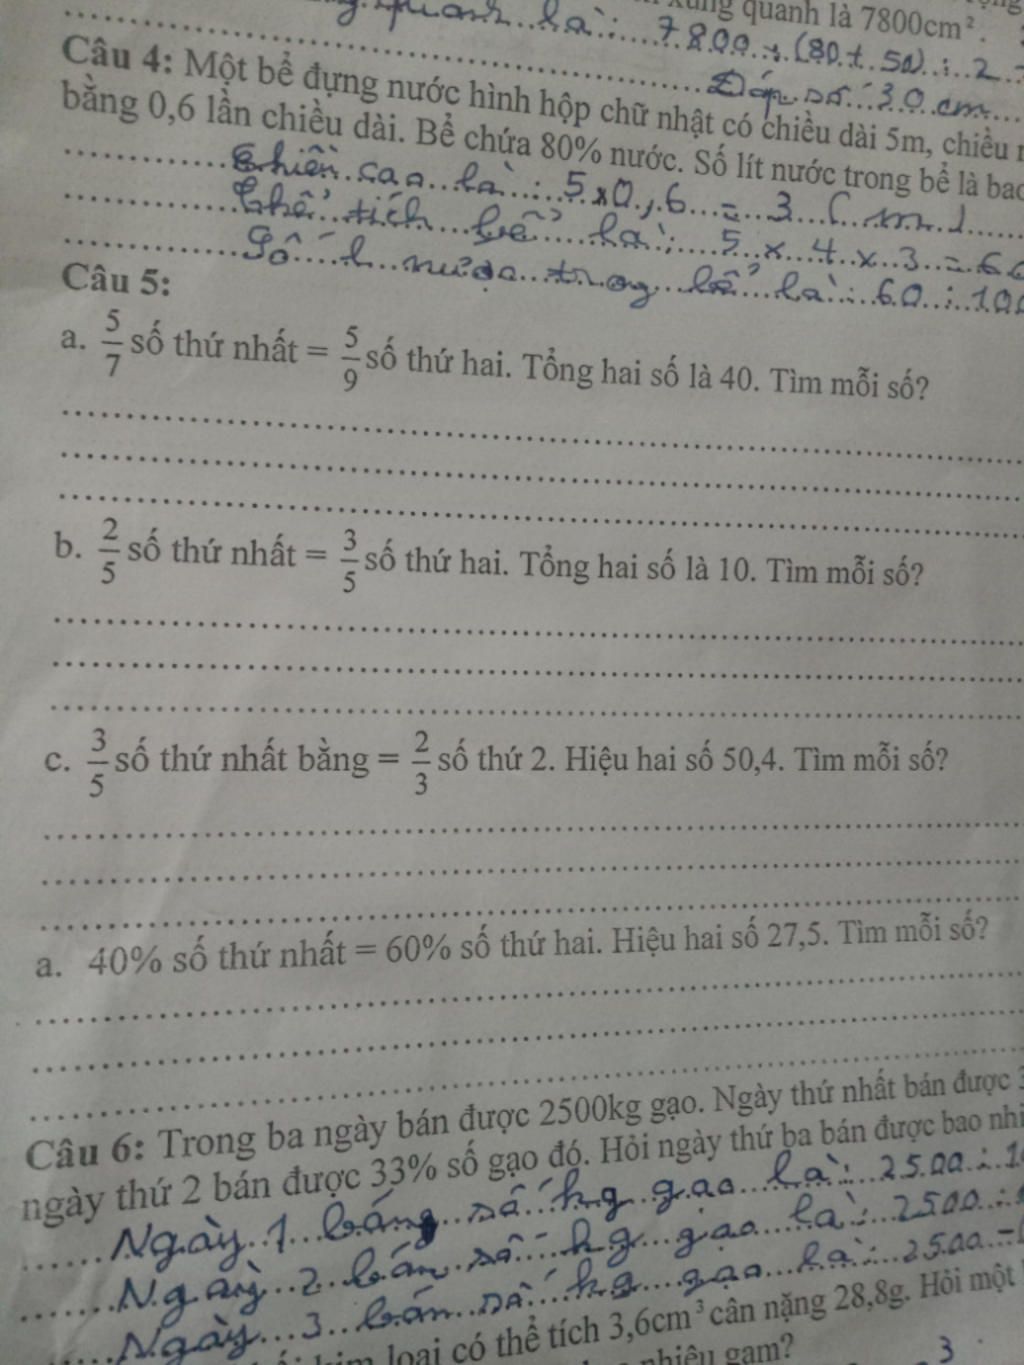 xung quanh là 7800cm².
quanh là: 7800 : (80 + 50) : 2
Đáp số: 30 cm
Câu 4: Một bể đựng nước hình hộp chữ nhật có chiều dài 5m, chiều
bằng 0,6 lần chiều dài. Bể chứa 80% nước. Số lít nước trong bể là bao
Chiều cao là: 5 x 0,6 = 3 (m)
Thể tích bể là: 5 x 4 x 3 = 60
Số l nước trong bể là: 60 : 100
Câu 5:
a. 5/7 số thứ nhất = 5/9 số thứ hai. Tổng hai số là 40. Tìm mỗi số?
b. 2/5 số thứ nhất = 3/5 số thứ hai. Tổng hai số là 10. Tìm mỗi số?
c. 3/5 số thứ nhất bằng = 2/3 số thứ 2. Hiệu hai số 50,4. Tìm mỗi số?
a. 40% số thứ nhất = 60% số thứ hai. Hiệu hai số 27,5. Tìm mỗi số?
Câu 6: Trong ba ngày bán được 2500kg gạo. Ngày thứ nhất bán được
ngày thứ 2 bán được 33% số gạo đó. Hỏi ngày thứ ba bán được bao
Ngày 1 bán số kg gạo là: 2500 :
Ngày 2 bán số kg gạo là: 2500 :
Ngày 3 bán số kg gạo là: 2500 -
loại có thể tích 3,6cm³ cân nặng 28,8g. Hỏi một
nhiêu gam?
3